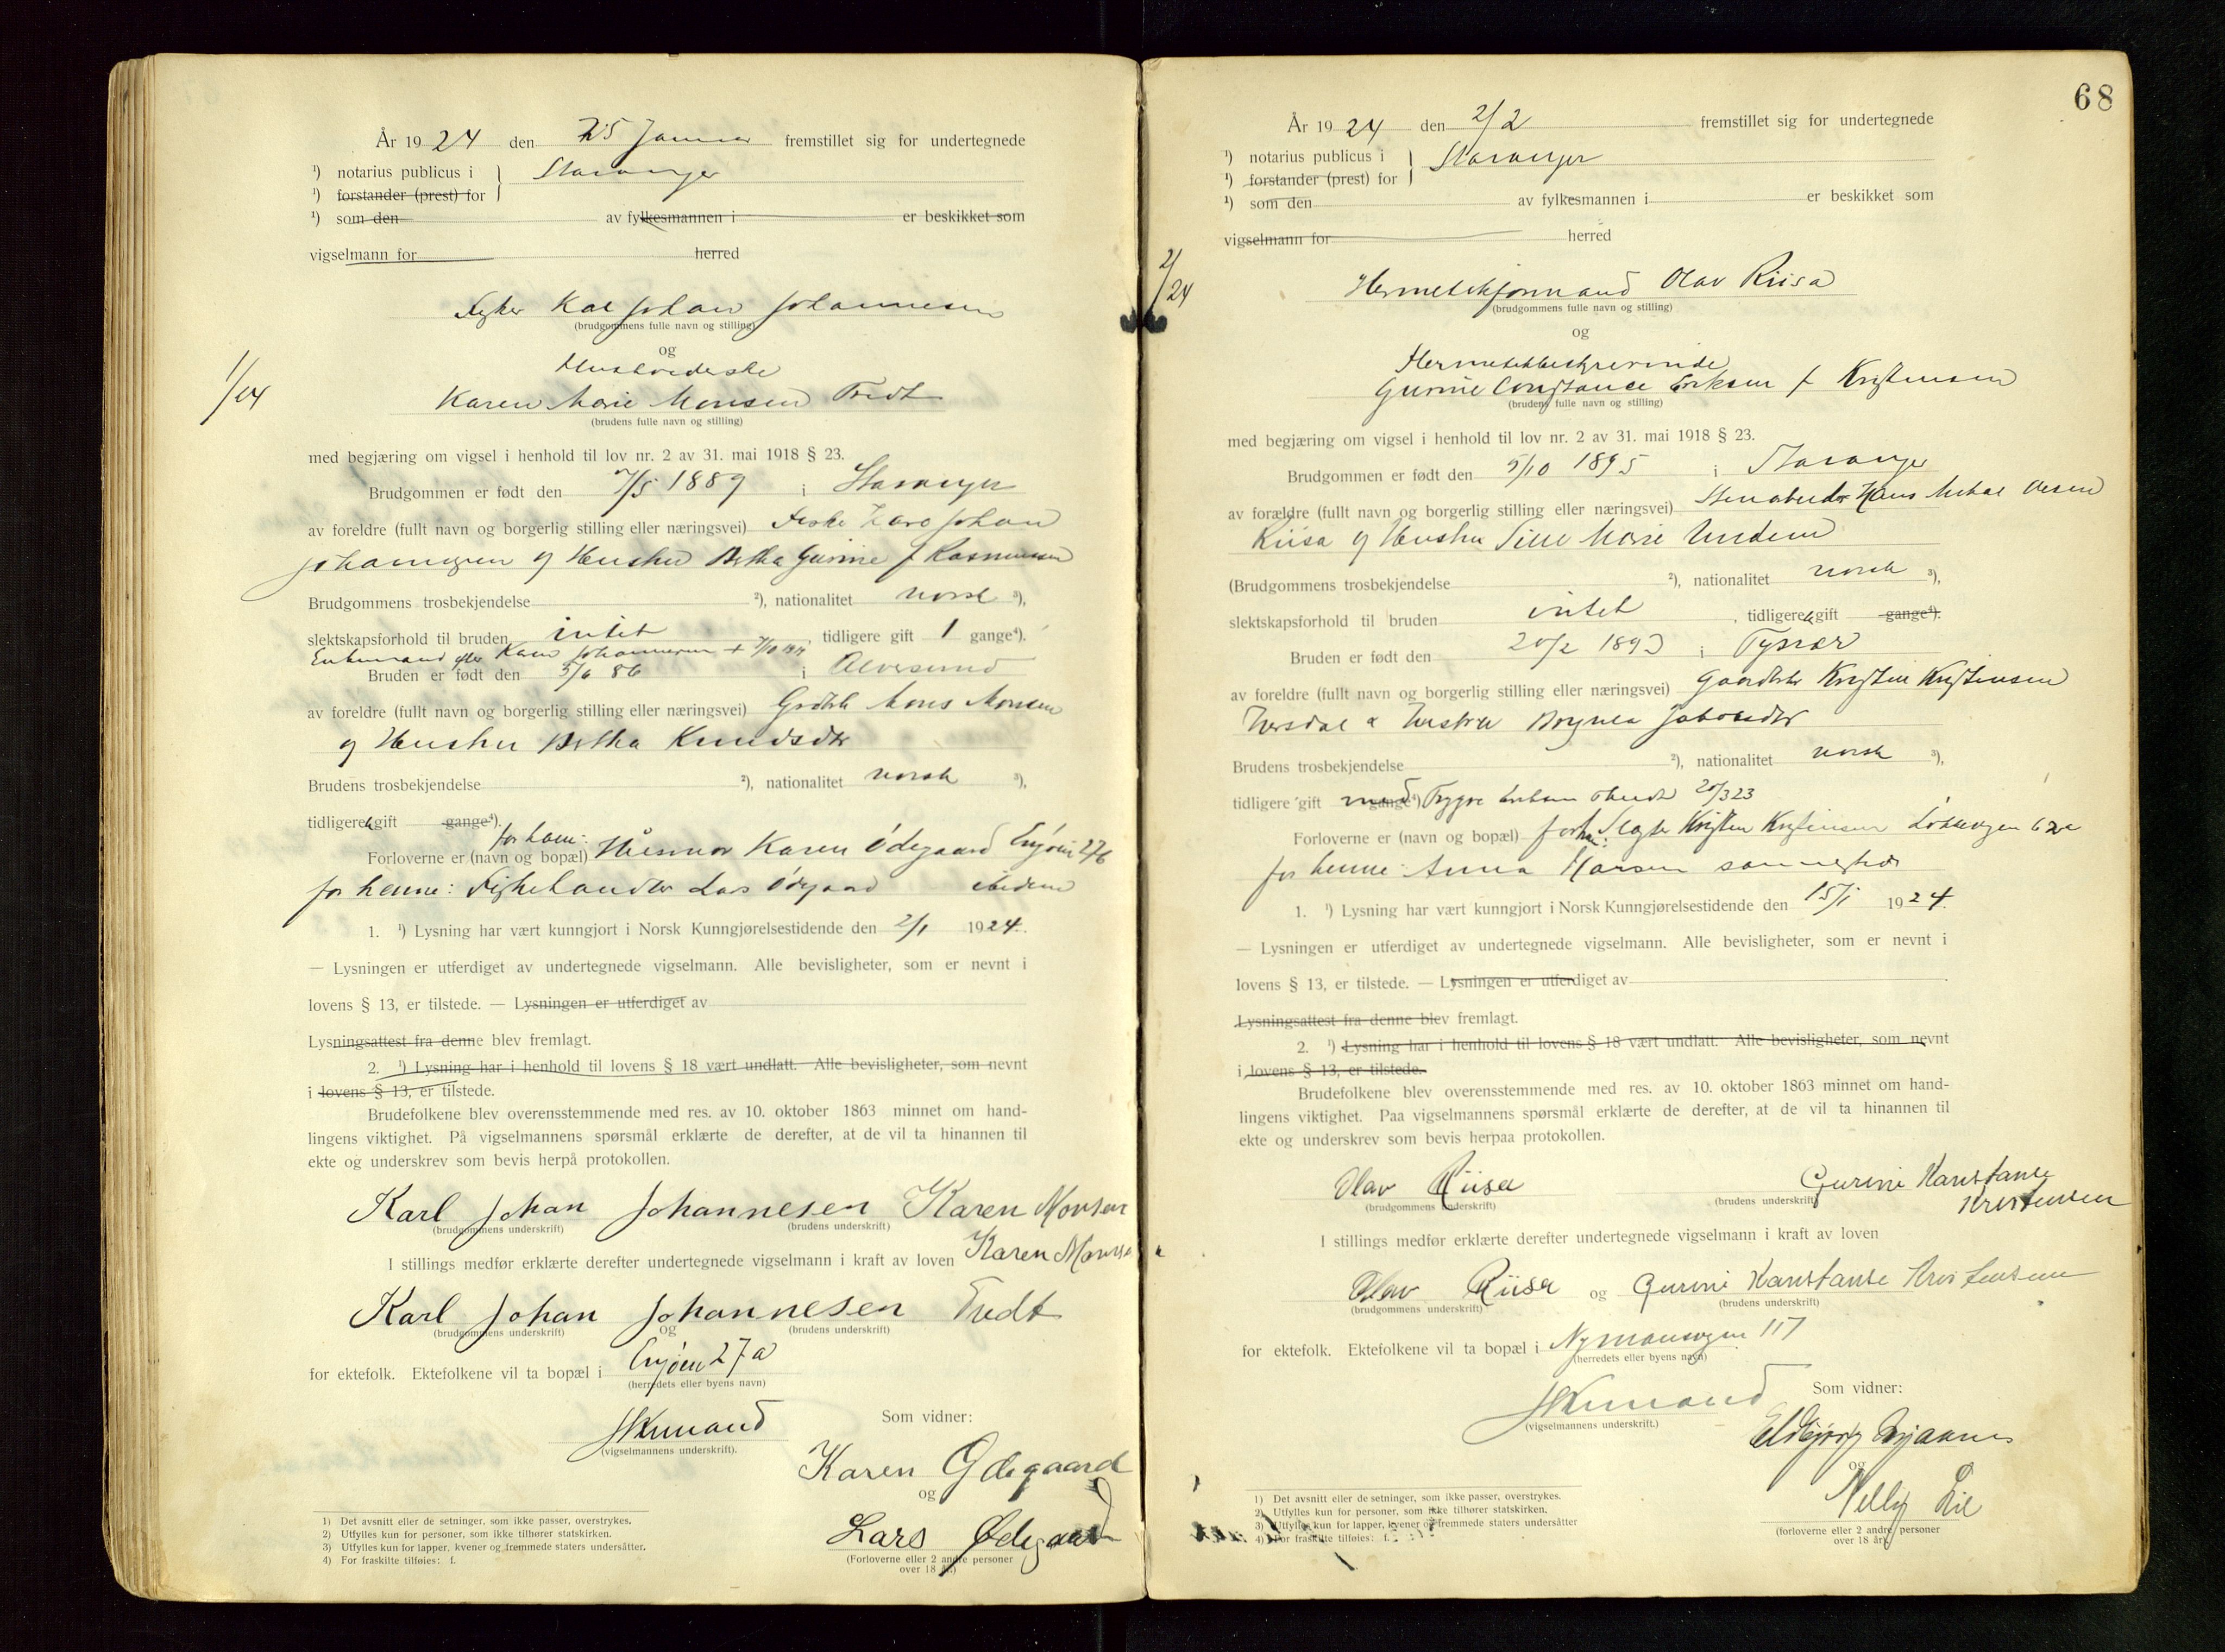 År 1924 den 25 Januar fremstillet sig for undertegnede
¹) notarius publicus i } Stavanger
¹) forstander (prest) for
¹) som den av fylkesmannen i er beskikket som
vigselmann for herred
1/24
Fisker Karl Johan Johannesen
(brudgommens fulle navn og stilling)
og
Husholderske
Karen Marie Monsen Tredt
(brudens fulle navn og stilling)
med begjæring om vigsel i henhold til lov nr. 2 av 31. mai 1918 § 23.
Brudgommen er født den 7/5 1889 i Stavanger
av foreldre (fullt navn og borgerlig stilling eller næringsvei) Fisker Johan
Johannesen og Hustru Bertha Gurine f Rasmussen
Brudgommens trosbekjendelse ²), nationalitet norsk ³),
slektskapsforhold til bruden intet, tidligere gift 1 gange⁴).
Enkemand efter Johannesen +
Bruden er født den 5/6 86 i Alversund
av foreldre (fullt navn og borgerlig stilling eller næringsvei) Mons Monsen
og Hustru Bertha Knudsdtr
Brudens trosbekjendelse ²), nationalitet norsk ³),
tidligere gift gange⁴).
for ham:
Forloverne er (navn og bopæl) Husmor Karen Ödegaard Engöen 27b
for henne: Fiskehandler Lars Ödegaard ibidem
1. ¹) Lysning har vært kunngjort i Norsk Kunngjørelsestidende den 2/1 1924.
— Lysningen er utferdiget av undertegnede vigselmann. Alle bevisligheter, som er nevnt i
lovens § 13, er tilstede. — Lysningen er utferdiget av
Lysningsattest fra denne blev fremlagt.
2. ¹) Lysning har i henhold til lovens § 18 vært undlatt. Alle bevisligheter, som nevnt
i lovens § 13, er tilstede.
Brudefolkene blev overensstemmende med res. av 10. oktober 1863 minnet om hand-
lingens viktighet. På vigselmannens spørsmål erklærte de derefter, at de vil ta hinannen til
ekte og underskrev som bevis herpå protokollen.
Karl Johan Johannesen Karen Monsen
(brudgommens underskrift) (brudens underskrift)
I stillings medfør erklærte derefter undertegnede vigselmann i kraft av loven Karen Monsen
Karl Johan Johannesen Tredt
(brudgommens underskrift) og (brudens underskrift)
for ektefolk. Ektefolkene vil ta bopæl i Engöen 27a
(herredets eller byens navn)
(vigselmannens underskrift).
Som vidner:
Karen Ödegaard
og
Lars Ødegaard
(Forloverne eller 2 andre personer
over 18 år.)
1) Det avsnitt eller de setninger, som ikke passer, overstrykes.
2) Utfylles kun for personer, som ikke tilhører statskirken.
3) Utfylles kun for lapper, kvener og fremmede staters undersåtter.
4) For fraskilte tilføies: f.
68
År 1924 den 2/2 fremstillet sig for undertegnede
¹) notarius publicus i } Stavanger
¹) forstander (prest) for
¹) som den av fylkesmannen i er beskikket som
vigselmann for herred
2/24
Hermetikformand Olav Riisa
(brudgommens fulle navn og stilling)
og
Hermetikbestyrerinde
Gurine Constance Eriksen f Kristensen
(brudens fulle navn og stilling)
med begjæring om vigsel i henhold til lov nr. 2 av 31. mai 1918 § 23.
Brudgommen er født den 5/10 1895 i Stavanger
av forældre (fullt navn og borgerlig stilling eller næringsvei) Stenarbeider Hans Mikal Olsen
Riisa og Hustru Sine Marie Undem
(Brudgommens trosbekjendelse ²), nationalitet norsk ³),
slektskapsforhold til bruden intet, tidligere gift gange⁴).
Bruden er født den 20/2 1893 i Tysvær
av foreldre (fullt navn og borgerlig stilling eller næringsvei) Kristen Kristensen
& Hustru Jakobsdtr
Brudens trosbekjendelse ²), nationalitet norsk ³),
tidligere gift med gange⁴) Trygve 20/3 23
Forloverne er (navn og bopæl) for ham: Kristen Kristensen
for henne: Anna Hansen sammesteds
1. ¹) Lysning har vært kunngjort i Norsk Kunngjørelsestidende den 15/1 1924.
— Lysningen er utferdiget av undertegnede vigselmann. Alle bevisligheter, som er nevnt i
lovens § 13, er tilstede. — Lysningen er utferdiget av
Lysningsattest fra denne blev fremlagt.
2. ¹) Lysning har i henhold til lovens § 18 vært undlatt. Alle bevisligheter, som nevnt
i lovens § 13, er tilstede.
Brudefolkene blev overensstemmende med res. av 10. oktober 1863 minnet om hand-
lingens viktighet. Paa vigselmannens spørsmål erklærte de derefter, at de vil ta hinannen til
ekte og underskrev som bevis herpaa protokollen.
Olav Riisa Gurine Konstanse
(brudgommens underskrift) (brudens underskrift) Kristensen
I stillings medfør erklærte derefter undertegnede vigselmann i kraft av loven
Olav Riisa og Gurine Konstanse Kristensen
(brudgommens underskrift) (brudens underskrift)
for ektefolk. Ektefolkene vil ta bopæl i Nymansveien 117
(herredets eller byens navn)
(vigselmannens underskrift.)
Som vidner:
Eldbjørg
og
Nelly Lie
(forloverne eller 2 andre personer
over 18 år)
1) Det avsnitt eller de setninger, som ikke passer, overstrykes.
2) Utfylles kun for personer, som ikke tilhører statskirken.
3) Utfylles kun for lapper, kvener og fremmede staters undersåtter
4) For fraskilte tilføies: f.